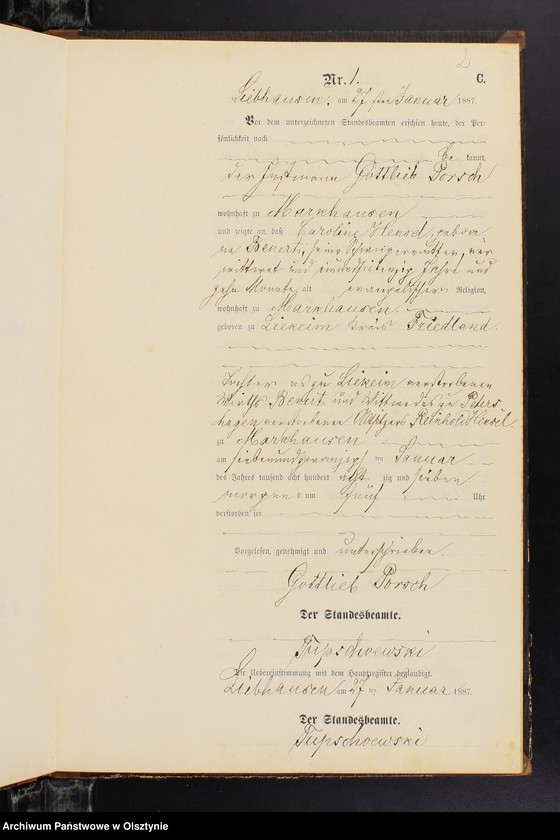 2
Nr. 1.
C.
Liebhausen, am 27 ten Januar 1887.
Vor dem unterzeichneten Standesbeamten erschien heute, der Per-
sönlichkeit nach
be kannt,
der Instmann Gottlieb Porsch
wohnhaft zu Markhausen
und zeigte an, daß Caroline Hensel, gebore
ne Benert, seine Schwiegermutter, ver
wittwet und einundsiebenzig Jahre und
zehn Monate alt evangelischer Religion,
wohnhaft zu Markhausen
geboren zu Liekeim Kreis Friedland
Tochter des zu Liekeim verstorbenen
Wirths Benert und Wittwe des zu Peters
hagen verstorbenen Altsitzers Reinhold Hensel
zu Markhausen
am siebenundzwanzigsten Januar
des Jahres tausend acht hundert acht zig und sieben
morgens um fünf Uhr
verstorben sei
Vorgelesen, genehmigt und unterschrieben.
Gottlieb Porsch
Der Standesbeamte.
Tupschoewski
Die Uebereinstimmung mit dem Hauptregister beglaubigt.
Liebhausen am 27 ten Januar 1887.
Der Standesbeamte.
Tupschoewski
Archiwum Państwowe w Olsztynie